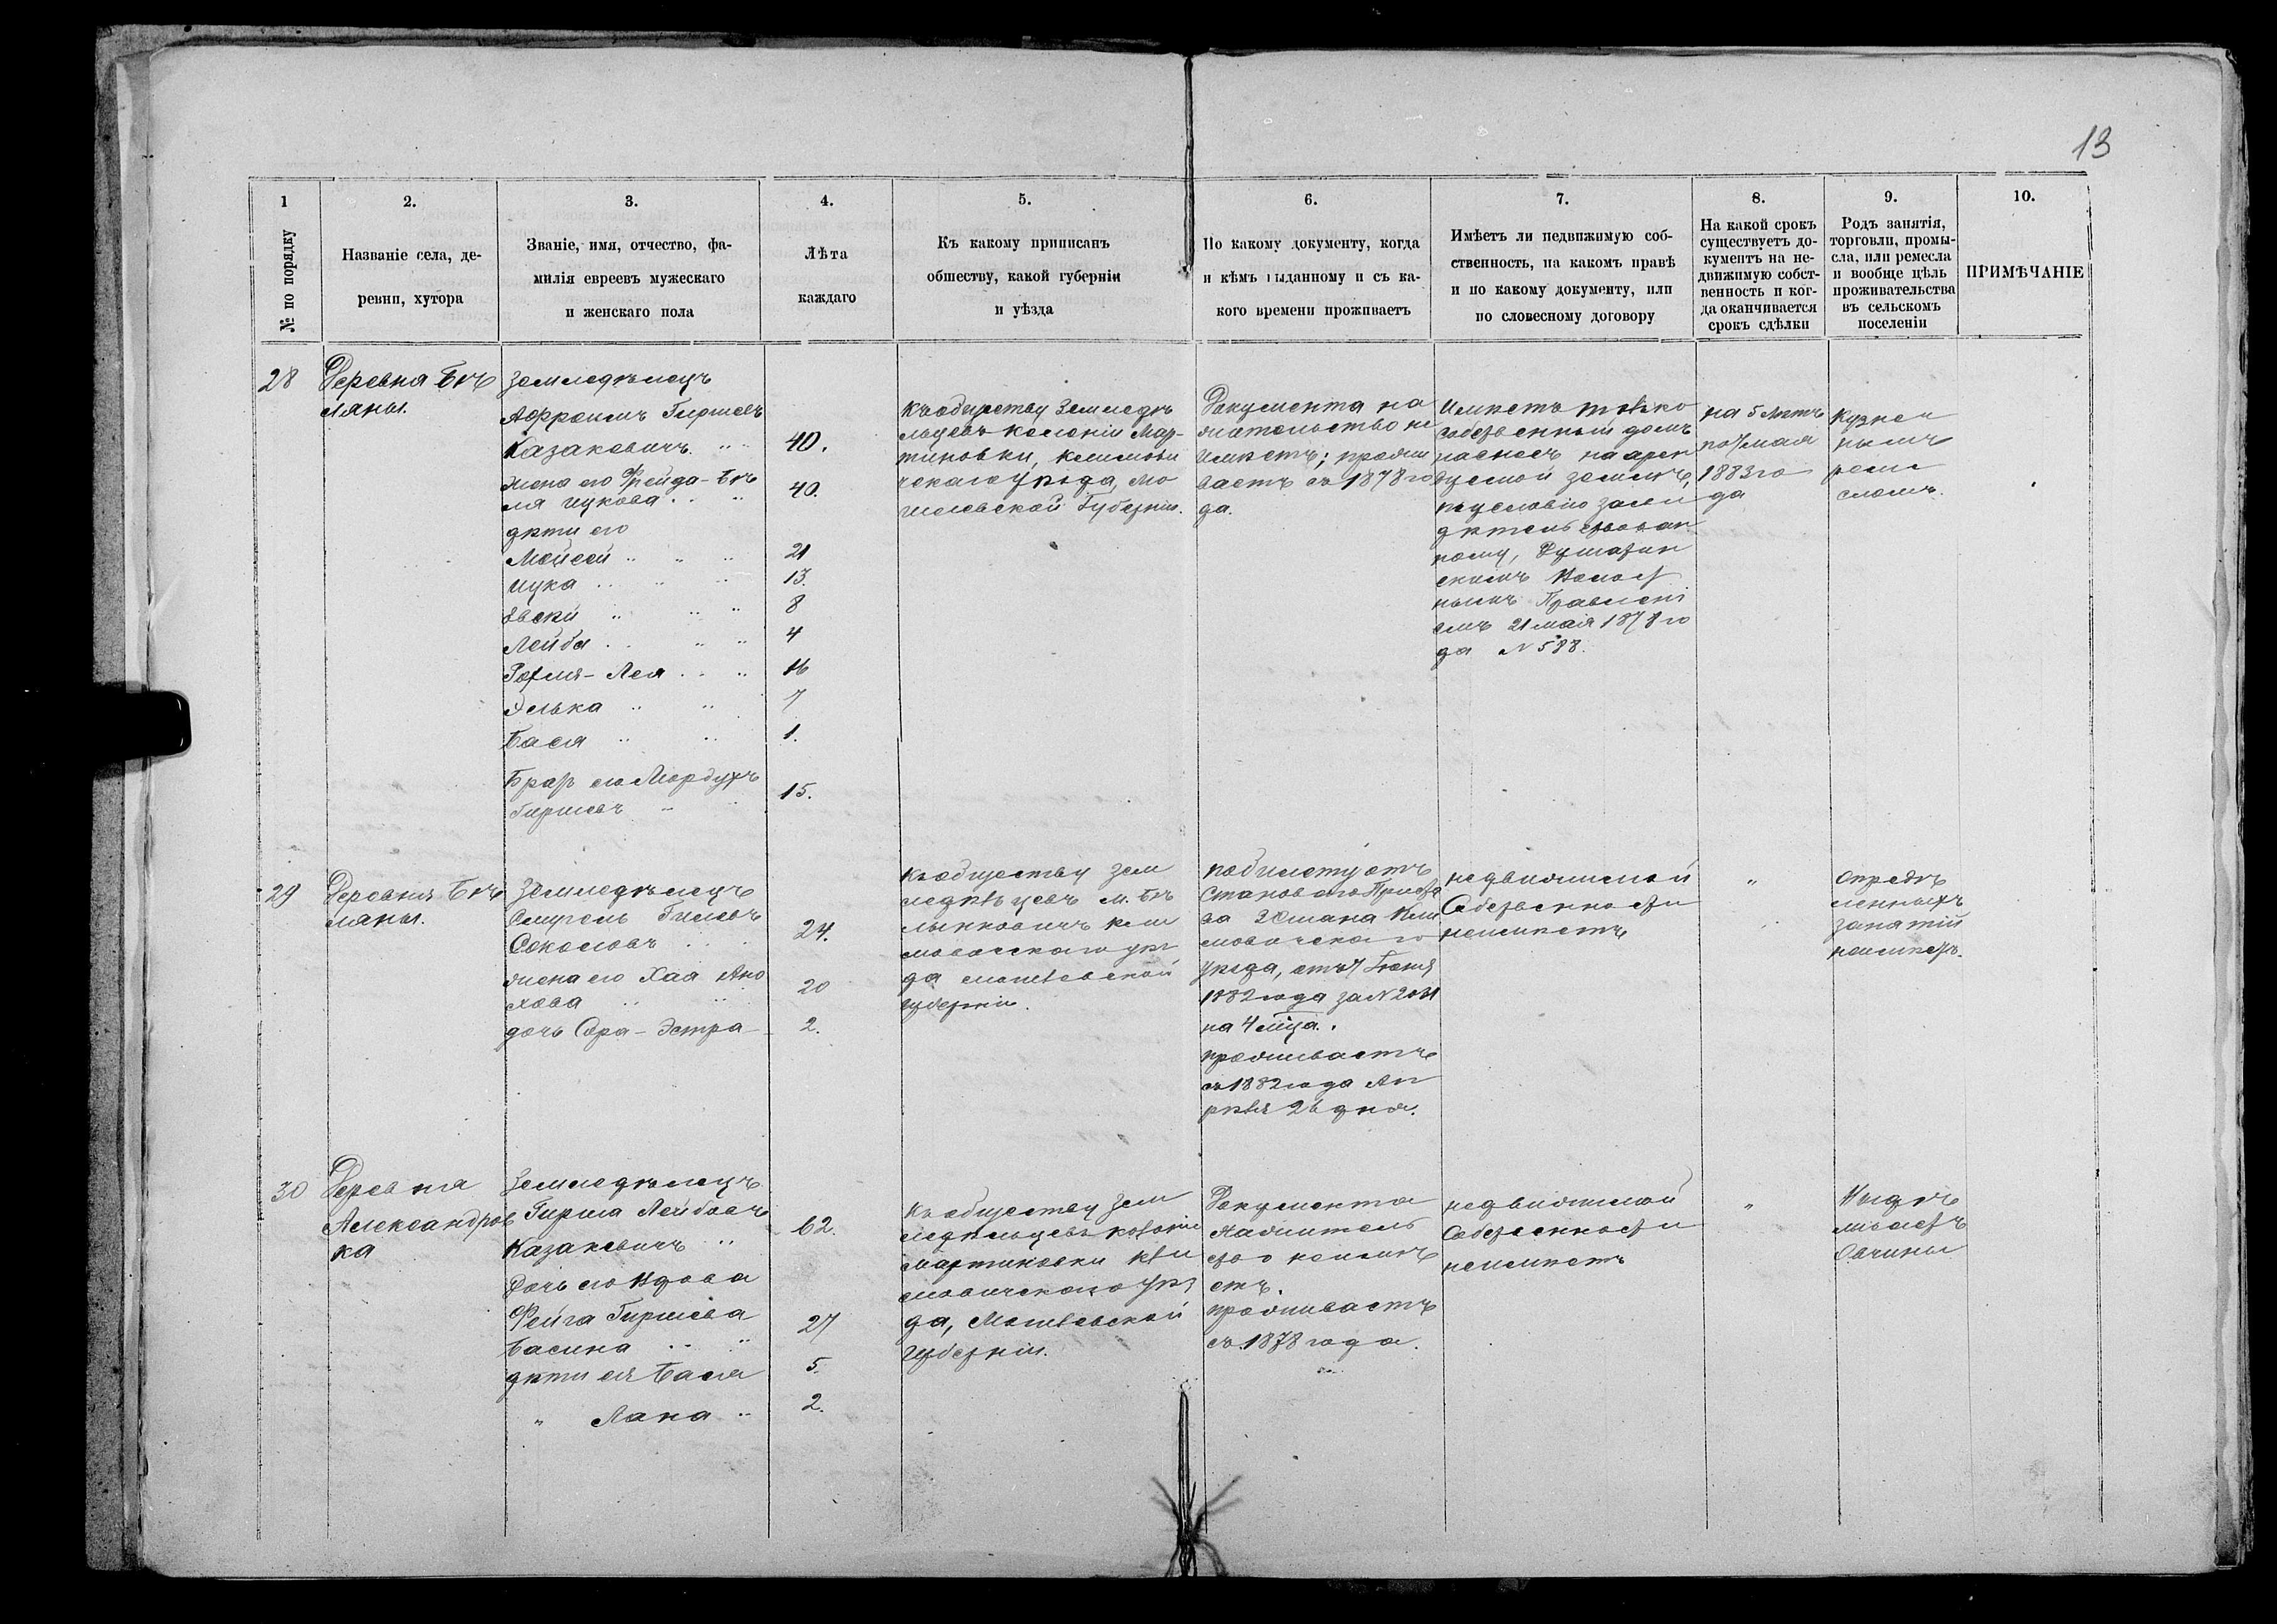 13
1
№ по порядку
2.
Названіе села, де-
ревни, хутора
3.
Званіе, имя, отчество, фа-
милія евреевъ мужескаго
и женскаго пола
4.
Лѣта
каждаго
5.
Къ какому приписанъ
обществу, какой губерніи
и уѣзда
6.
По какому документу, когда
и кѣмъ выданному и съ ка-
кого времени проживаетъ
7.
Имѣетъ ли недвижимую соб-
ственность, на какомъ правѣ
и по какому документу, или
по словесному договору
8.
На какой срокъ
существуетъ до-
кументъ на не-
движимую собст-
венность и ког-
да оканчивается
срокъ сдѣлки
9.
Родъ занятія,
торговли, промы-
сла, или ремесла
и вообще цѣль
проживательства
въ сельскомъ
поселеніи
10.
ПРИМѢЧАНІЕ
28
Деревня Бѣ
ляны.
Земледѣлецъ
Афроимъ Гиршевъ
Казаковичъ. " "
жена его Фрейда-Бѣ
ля Ицкова . . "
дѣти его
Мойсей " " "
Ицка . . " "
Лейба . . " "
-Лея . . "
Элька " "
Бася " "
Братъ его Мордухъ
Гиршевъ - "
40.
40.
21
13.
8
4
16
7
1.
15.
Къ обществу Земледѣ
льцевъ колоніи Мар-
тиновки, Климови
ческаго уѣзда, Мо
гилевской Губерніи.
Документа на
жительство не
имѣетъ; прожи
ваетъ съ 1878 го
да.
Имѣетъ только
собственный домъ
на арен
дуемой землѣ,
по условію засви
дѣтельствован
ному,
скимъ Волост
нымъ Правлені
емъ 21 мая 1878 го
да № 588.
на 5 лѣтъ
по 7 мая
1883 го
да
Кузнеч
нымъ
реме
сломъ.
29
Деревня Бѣ
ляны.
Земледѣлецъ
Смуель Гилевъ
Соколовъ . . .
жена его Хая Ано
хова " "
дочь Сора-Эстра
24.
20
2.
Къ обществу зем
ледѣльцевъ м. Бѣ
лынковичъ кли
мовическаго уѣз
да могилевской
губерніи.
по билету отъ
Становаго Приста
ва 2 Стана Кли
мовическаго
уѣзда, отъ 7 Іюня
1882 года за № 2031
на 4 мѣца.
проживаетъ
съ 1882 года Ап
рѣля 26 дня.
недвижимой
Собственности
неимѣетъ
"
опредѣ
ленныхъ
занятій
неимѣетъ.
30
Деревня
Александров
ка
Земледѣлецъ
Гирша Лейбовъ
Казакевичъ "
Дочь его Вдова
Фейга Гиршева
Басина . . "
дѣти ея Бася
" Хана "
62.
27
5.
2.
Къ обществу зем
ледѣльцевъ колоніи
Мартиновки кли
мовическаго уѣз
да, Могилевской
Губерніи.
Документа
на жительс
тво неимѣ
етъ.
проживаетъ
съ 1878 года.
недвижимой
Собственности
неимѣетъ
"
Выдѣ
лываетъ
Овчины